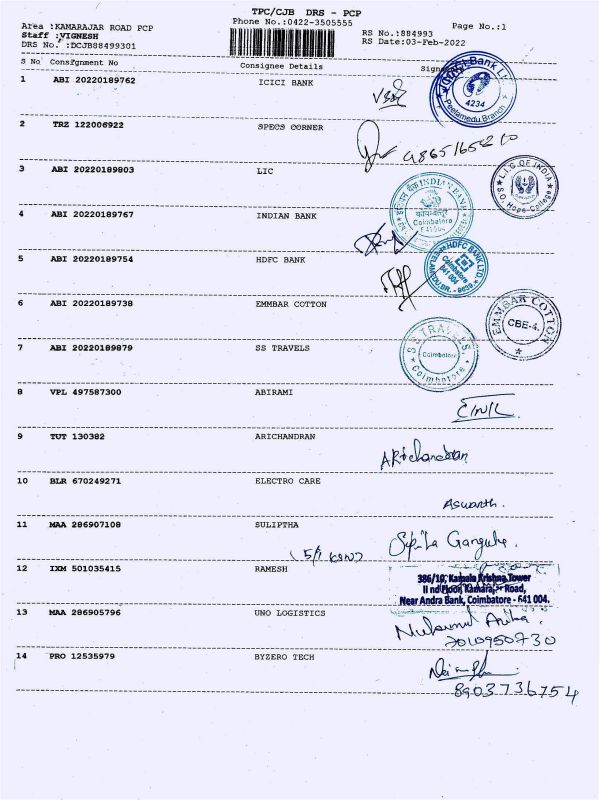 TPC/CJB DRS - PCP
Area :KAMARAJAR ROAD PCP
Phone No.:0422-3505555
Page No.:1
Staff :VIGNESH
RS No.:884993
DRS No. :DCJB88499301
RS Date:03-Feb-2022
S No Consignment No Consignee Details
1 ABI 20220189762 ICICI BANK
ICICI Bank
4234
Peelamedu Branch
2 TRZ 122006922 SPECS CORNER
3 ABI 20220189803 LIC
L.I.C OF INDIA
S.O. Hope College
4 ABI 20220189767 INDIAN BANK
INDIAN BANK
Coimbatore
641004
5 ABI 20220189754 HDFC BANK
HDFC BANK LTD.
Coimbatore
641 004
6 ABI 20220189738 EMMBAR COTTON
EMMBAR COTTON
CBE-4.
7 ABI 20220189879 SS TRAVELS
S S TRAVELS
Coimbatore
Coimbatore
8 VPL 497587300 ABIRAMI
9 TUT 130382 ARICHANDRAN
Arichandran
10 BLR 670249271 ELECTRO CARE
Aswanth.
11 MAA 286907108 SULIPTHA
12 IXM 501035415 RAMESH
386/19, Kamala Krishna Tower
II nd Floor, Kamarajar Road,
Near Andra Bank, Coimbatore - 641 004.
13 MAA 286905796 UNO LOGISTICS
7010950730
14 PRO 12535979 BYZERO TECH
8903736754